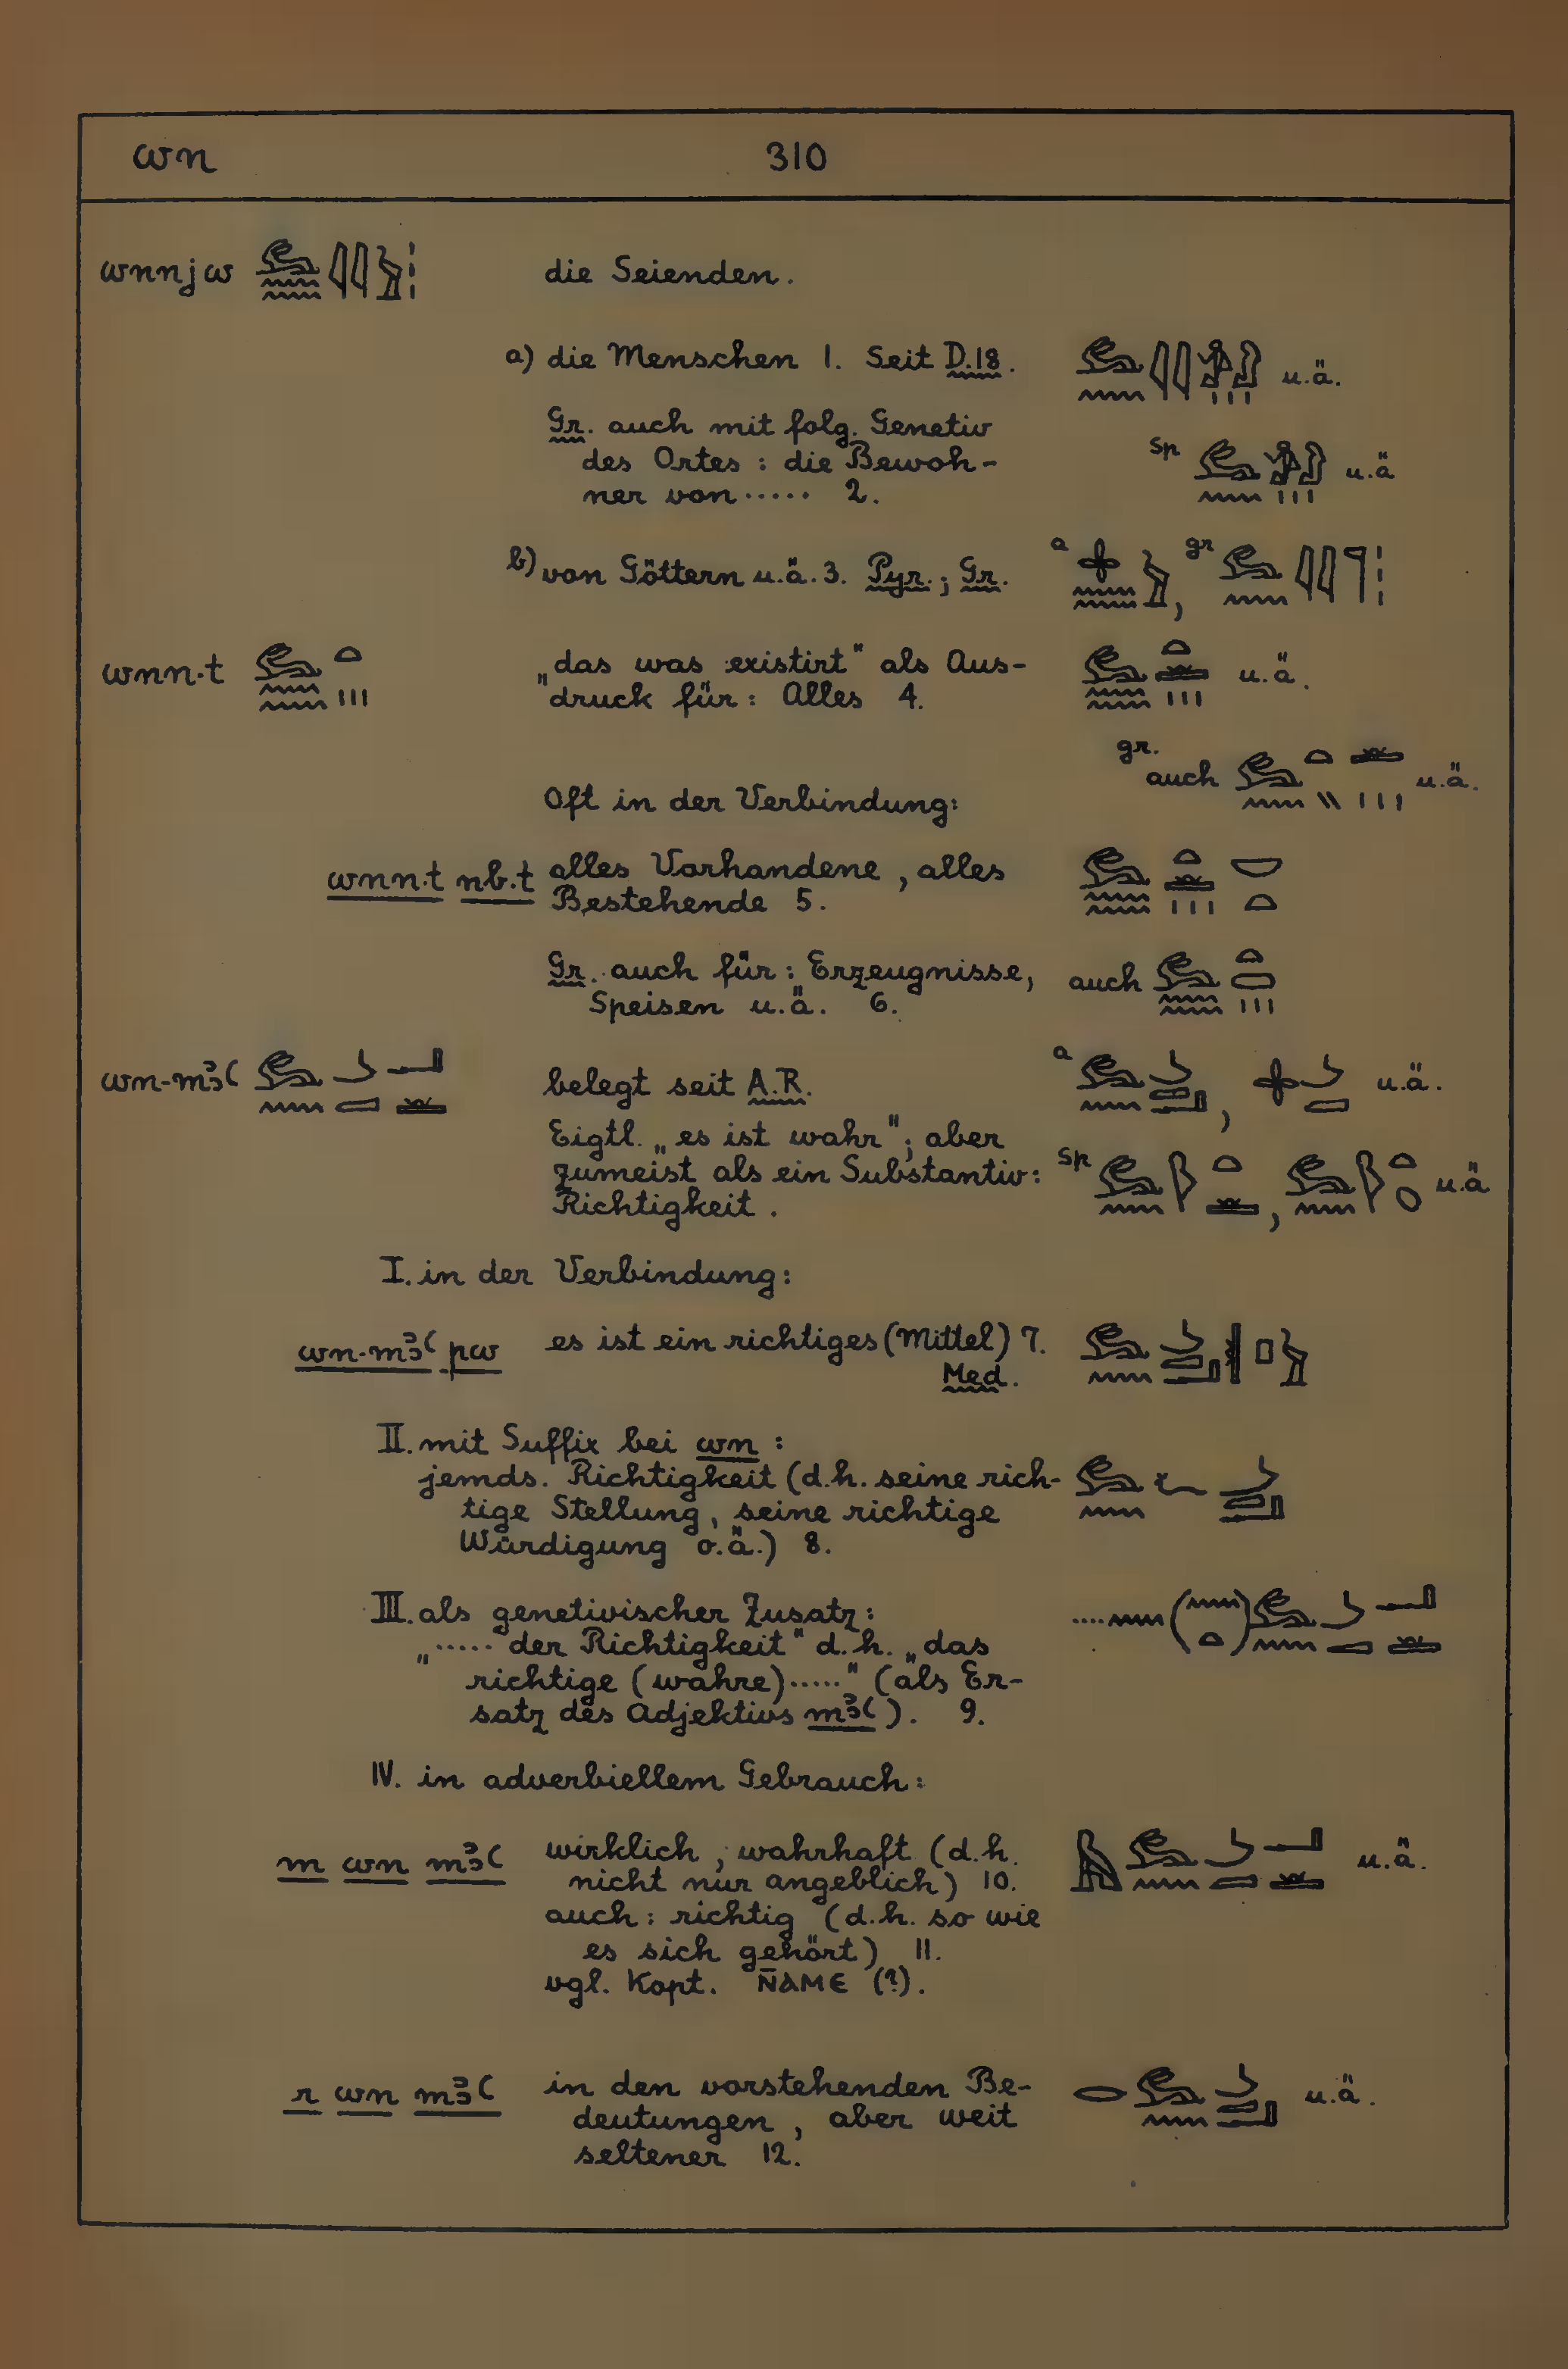 wn 310
wnnjw die Seienden.
a) die Menschen 1. Seit D.18. u.ä.
Gr. auch mit folg. Genetiv
des Ortes : die Bewoh- sp u.ä
ner von ..... 2.
b) von Göttern u.ä. 3. Pyr.; Gr. a , gr
wnn·t „das was existirt" als Aus- u.ä.
druck für: Alles 4.
gr.
auch u.ä.
Oft in der Verbindung:
wnn·t nb·t alles Vorhandene, alles
Bestehende 5.
Gr. auch für: Erzeugnisse, auch
Speisen u.ä. 6.
wn-mꜣꜥ belegt seit A.R. a , u.ä.
Eigtl. „es ist wahr"; aber
zumeist als ein Substantiv: sp , u.ä
Richtigkeit.
I. in der Verbindung:
wn-mꜣꜥ pw es ist ein richtiges (Mittel) 7.
Med.
II. mit Suffix bei wn :
jemds. Richtigkeit (d.h. seine rich-
tige Stellung, seine richtige
Würdigung o.ä.) 8.
III. als genetivischer Zusatz:
„..... der Richtigkeit" d.h. „das
richtige (wahre)....." (als Er-
satz des Adjektivs mꜣꜥ). 9.
IV. in adverbiellem Gebrauch:
m wn mꜣꜥ wirklich, wahrhaft (d.h. u.ä.
nicht nur angeblich) 10.
auch: richtig (d.h. so wie
es sich gehört) 11.
vgl. Kopt. N̄ΑΜΕ (?).
r wn mꜣꜥ in den vorstehenden Be- u.ä.
deutungen, aber weit
seltener 12.